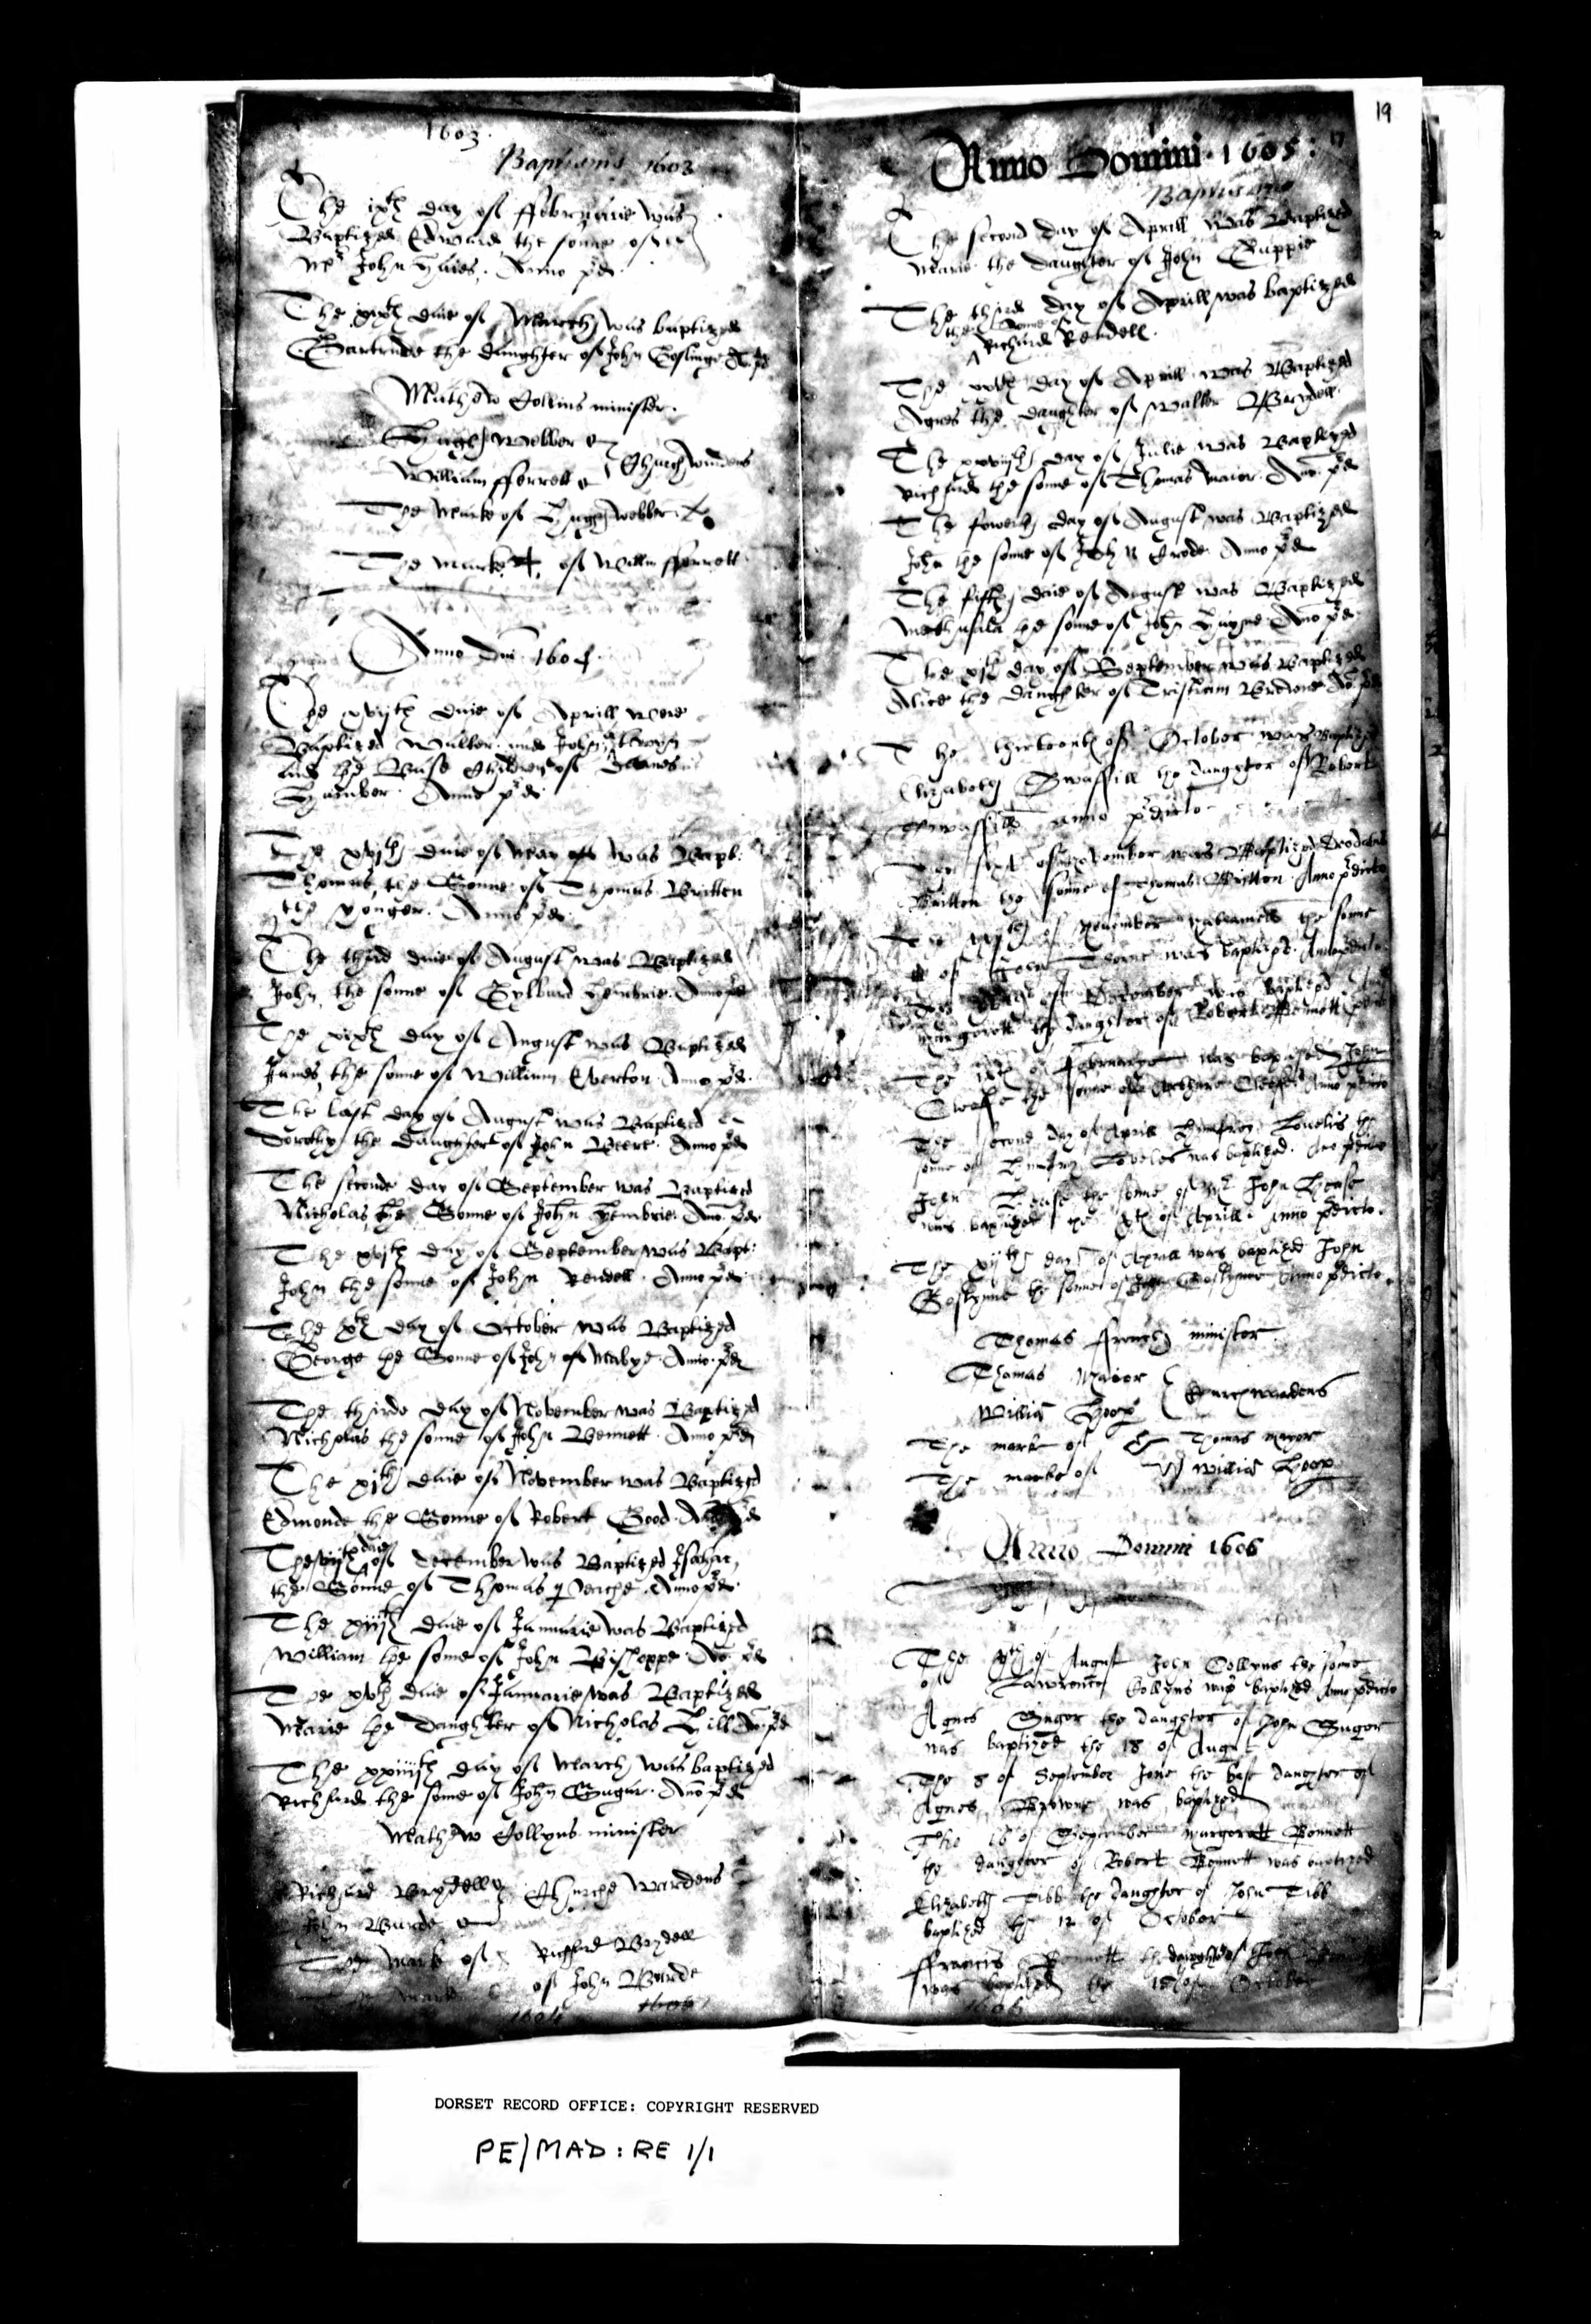 1603
Baptisms 1603
The ixth day of ffebruarie was
Baptized Edward the sonne of
Mr John
Anno pd
The xixth daie of March was baptized
Gartrude the daughter of John Goslinge A pd
Mathew Collins minister
Hugh Webber
William fferrett Churchwardens
The Marke of Hugh Webber
The Marke of Willm fferrett
Anno Dni 1604
The xvijth daie of Aprill were
Baptized Walter and John
the Base Children of
Anno pd
The xvjth daie of May was Bapt:
Thomas the Sonne of Thomas Britten
the yonger. Anno pd
The third daie of August was Baptized
John the sonne of Gylbard Hembrie Anno pd
The xixth day of August was Baptized
James the sonne of William Everton Anno pd
The last day of August was Baptized
Dorothy the daughter of John Beere Anno pd
The seconde day of September was Baptized
Nicholas the Sonne of John Hembrie Ano pd
The xvjth day of September was Bapt:
John the sonne of John Rendell Anno pd
The xth day of October was Baptized
George the Sonne of John Anno pd
The thirde day of November was Baptized
Nicholas the sonne of John Bennett Anno pd
The xjth daie of November was Baptized
Edmonde the Sonne of Robert Good
daie
The of December was Baptized
the Sonne of Thomas Anno pd
The xiijth daie of Januarie was Baptized
William the sonne of John Bishoppe Ano pd
The xvth daie of Januarie was Baptized
Marie the Daughter of Nicholas Hill Ao pd
The xxiiijth day of March was baptized
Richard the sonne of John Sugar Ano pd
Mathew Collyns minister
Richard Brydell Churche Wardens
John Burde
The mark of Richard Brydell
of John Burde
1604
19
17
Anno Domini 1605:
Baptisms
The second day of Aprill was Baptized
Marie the daughter of John Guppie
The third day of Aprill was baptized
the sonne of
Richard Rendell
The xxth day of Aprill was Baptized
Agnes the daughter of Walter
The day of Julie was Baptized
Richard the sonne of Thomas Maior Ano pd
The fowerth day of August was Baptized
John the sonne of John Anno pd
The fifth daie of August was Baptized
Methusala the sonne of John Ano pd
The xjth day of September was Baptized
Alice the daughter of Tristram Browne Ao pd
The thirteenth of October was Baptized
Elizabeth Swaffill the daughter of Robert
Swaffill anno pdicto
The first of November was Baptized Deodatus
Britten the sonne of Thomas Britten Anno pdicto
The of November the sonne
of was baptized Anno pdicto
of December was baptized
Margerett the daughter of Robert Bennett
The 18th of februarye was baptised John
the sonne of Anno pdicto
The second day of Aprill Humfrey Lovelis the
sonne of Humfrey Loveles was baptized Ano pdicto
John the sonne of Mr John
was baptized the xth of Aprill Anno pdicto
The xijth day of Aprill was baptized John
Goslynne the sonne of Goslynne Anno pdicto
Thomas ffrench minister
Thomas Maior
Willia Hoop Churchwardens
The mark of Thomas Mayor
The marke of Willia Hoop
Anno Domini 1606
The of August John Collyns the sonne
of Lawrence Collyns was baptized Anno pdicto
Agnes Suger the daughter of John Suger
was baptized the 18 of August
The 8 of September Jone the base daughter of
Agnes Browne was baptized
The 18 of September Margerett Bennett
the daughter of Robert Bennett was baptized
Elizabeth Tibb the daughter of John Tibb
baptized the 12 of October
ffrancis Bennett the daughter of John
was baptized the 18 of October
1606
DORSET RECORD OFFICE: COPYRIGHT RESERVED
PE/MAD: RE 1/1